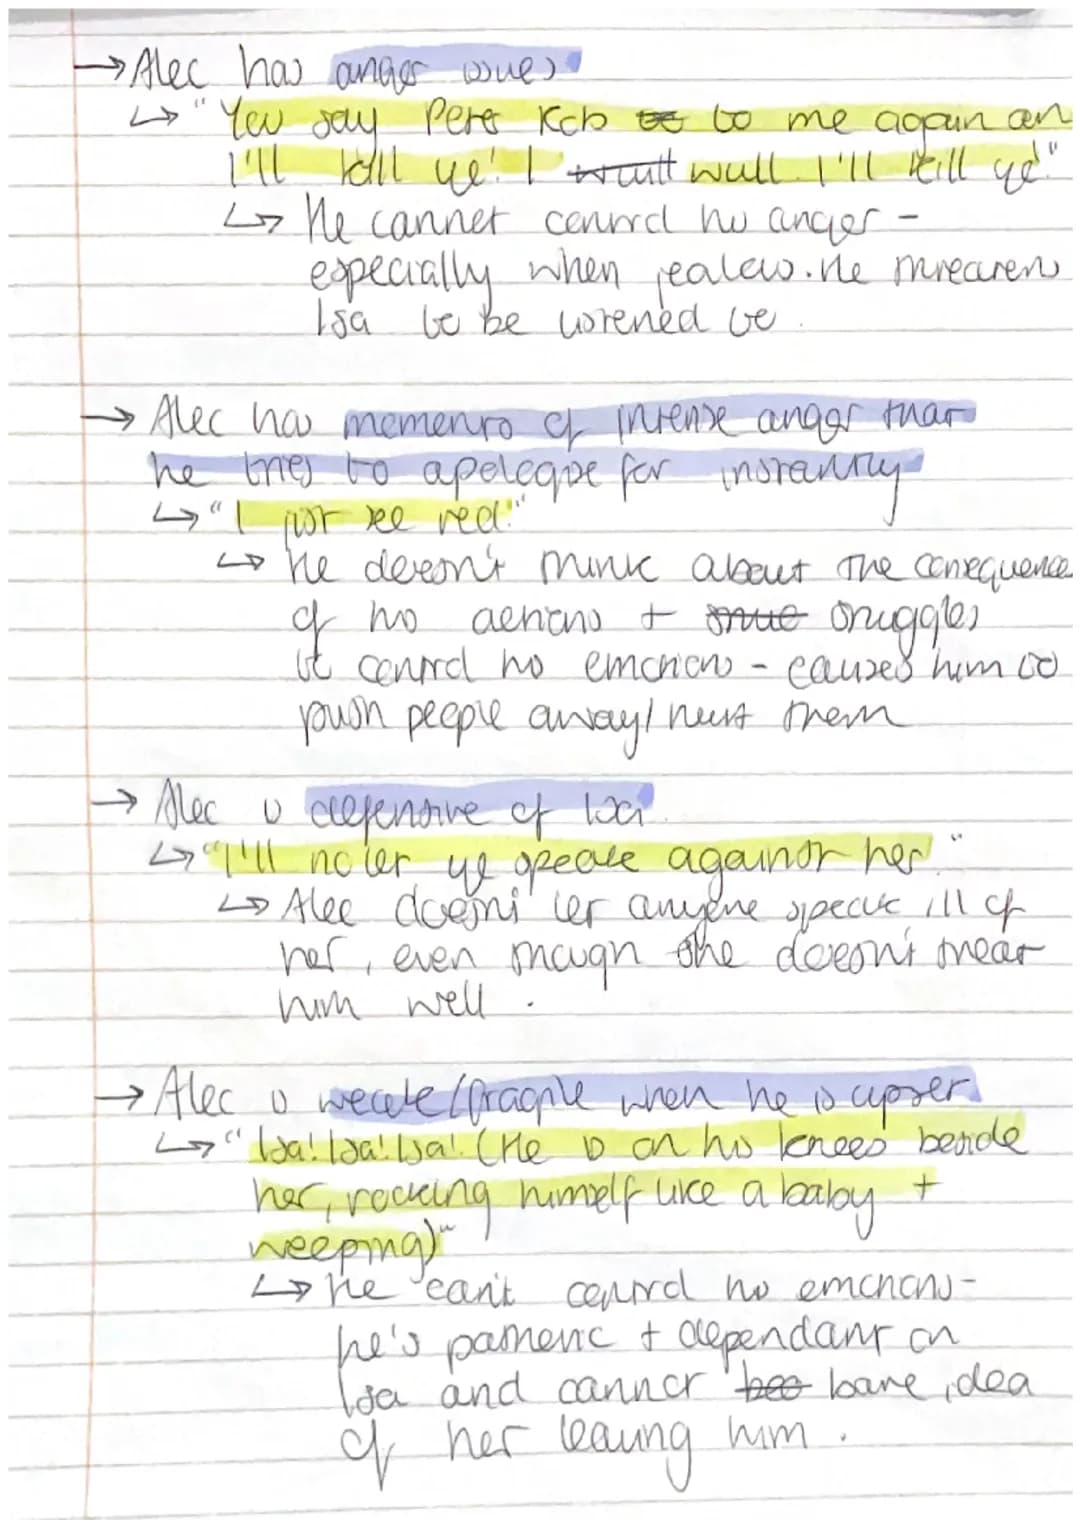 → Alec has anger issues
↳ "You say Peter Robb to to me again an
I'll kill ye! I wull I'll kill ye."
↳ He cannot control his anger -
especially when jealous. He threatens
Isa to be worened to.
→ Alec has moments of intense anger that
he tries to apologise for instantly
↳ "I just see red."
↳ He doesn't think about the consequence
of his actions + struggles
to control his emotions - causes him to
push people away/ hurt them
→ Alec is defensive of Isa
↳ "I'll no let ye speak against her."
↳ Alec doesn't let anyone speak ill of
her, even though she doesn't treat
him well.
→ Alec is weak/fragile when he is upset
↳ "Isa! Isa! Isa! (He is on his knees beside
her, rocking himself like a baby +
weeping)"
↳ He can't control his emotions -
he's pathetic + dependant on
Isa and cannot bare idea
of her leaving him.